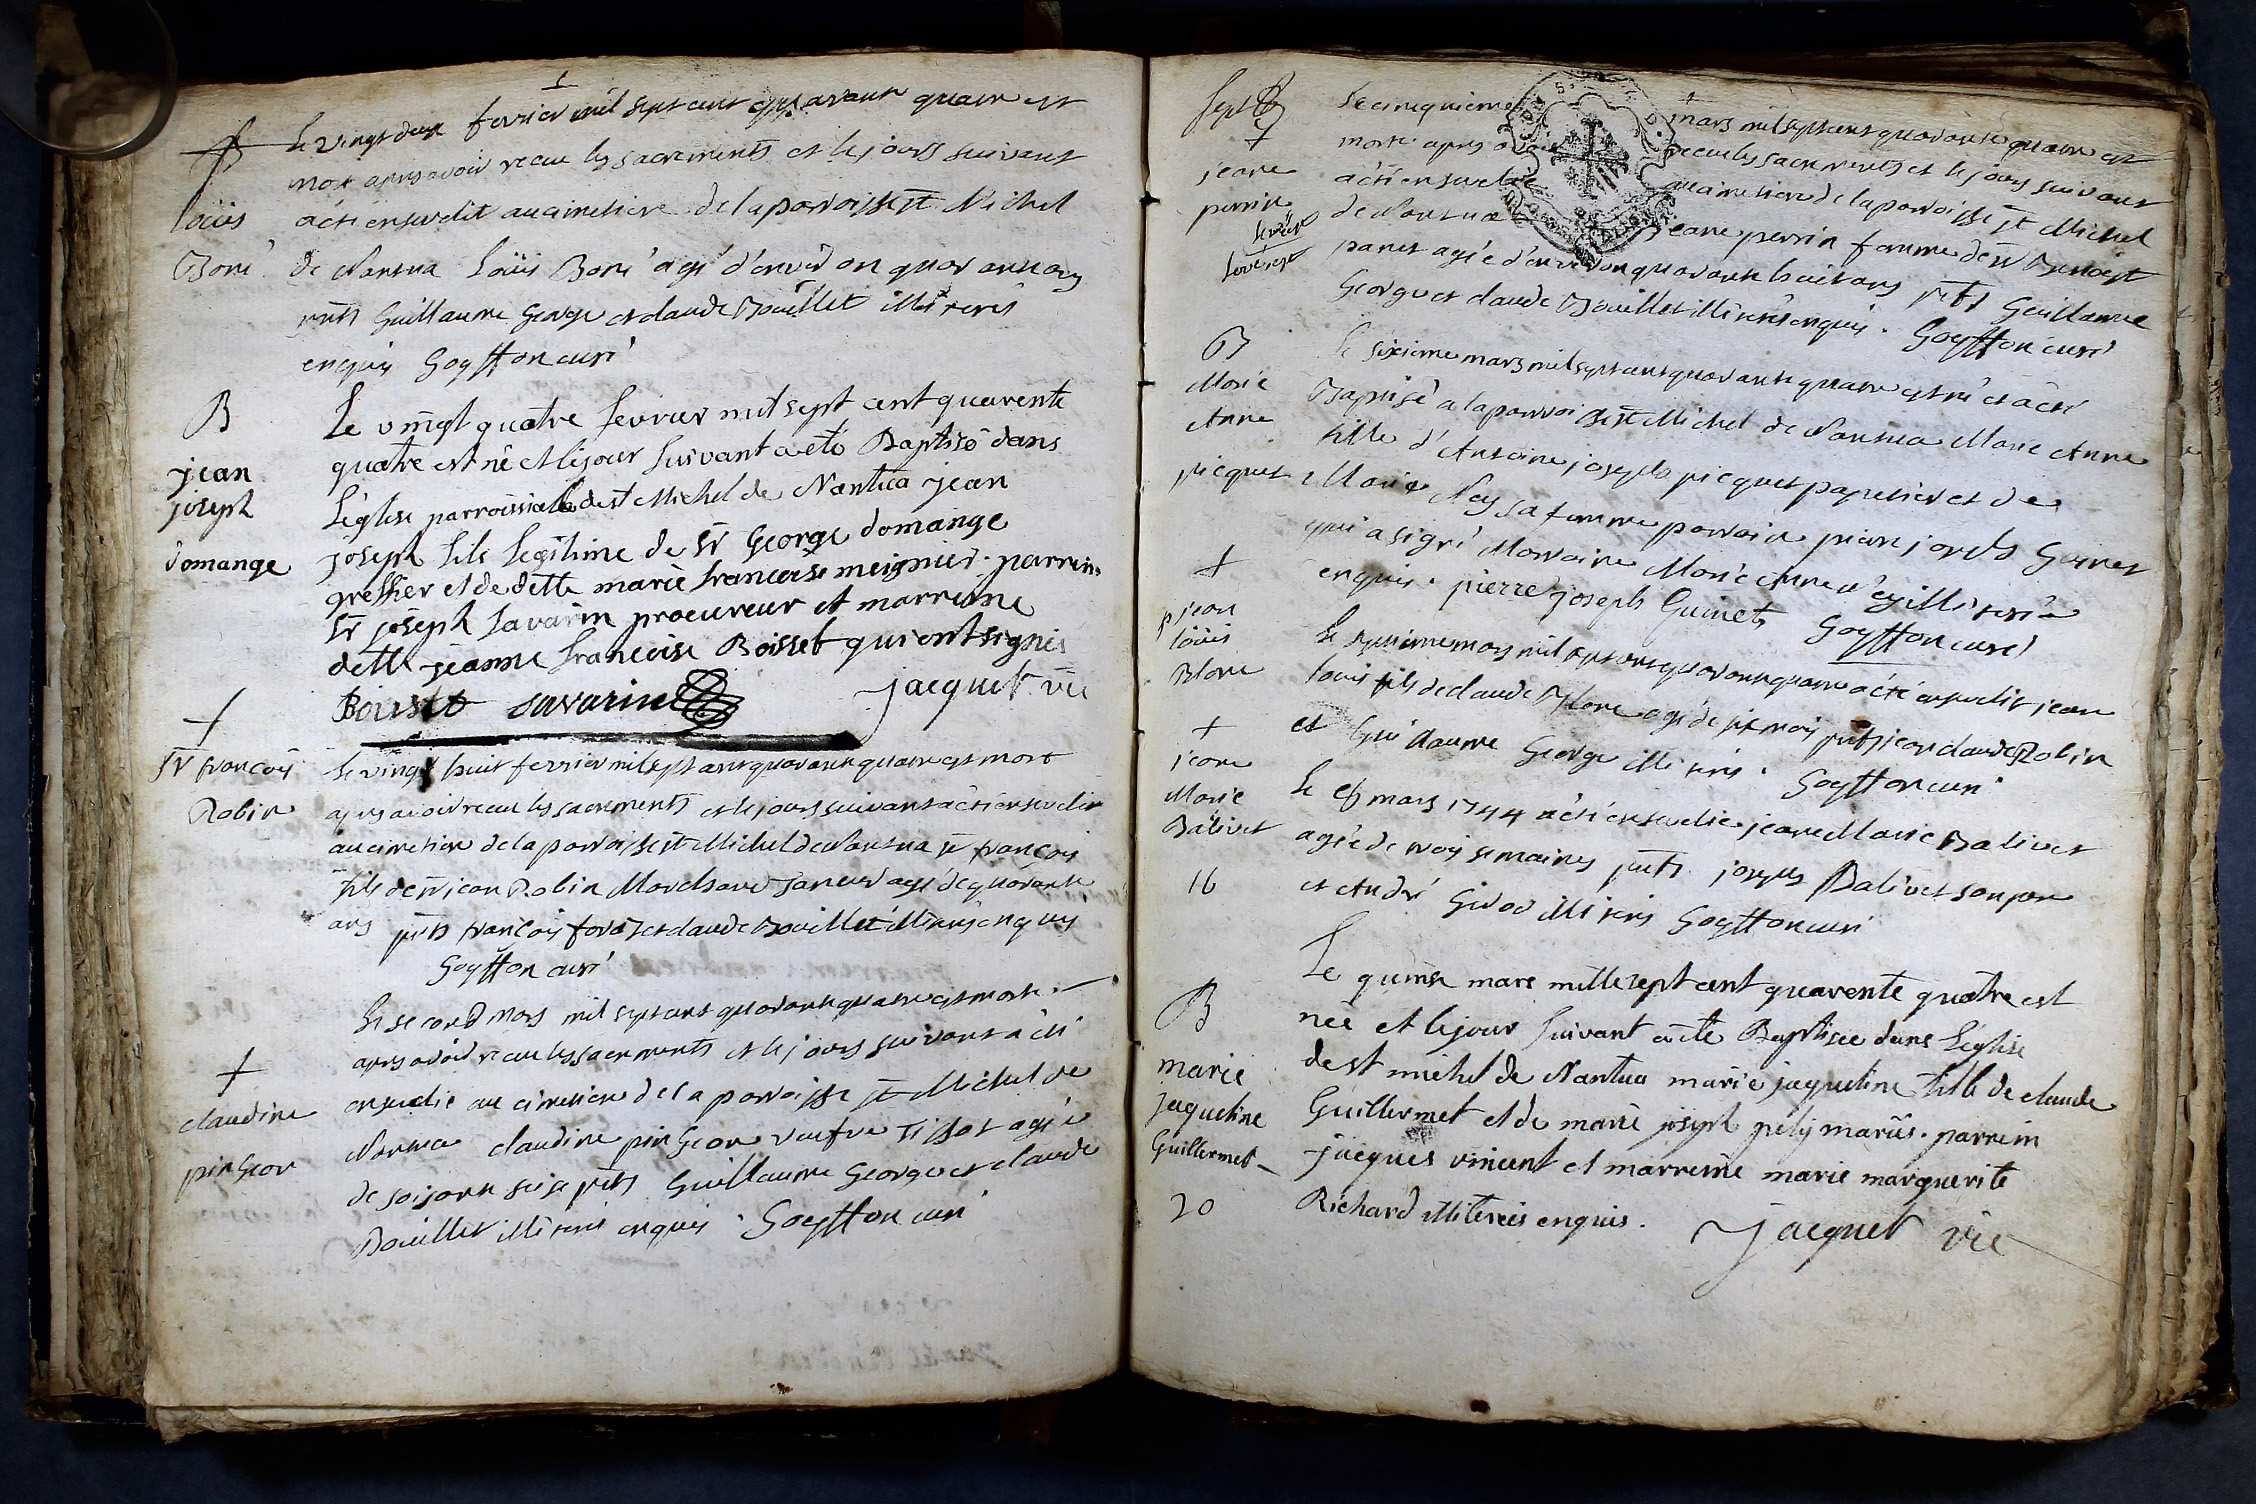 Le vingt deux fevrier mil sept cent quarante quatre est
mort apres avoir receu les sacrements et le jours suivant
a été ensevelit au cimetiere de la parroisse st Michel
de Nantua Loüis Boné agé d'environ quarante ans
pnts Guillaume George et claude Bouillet illiterés
enquis Goyffon curé
Loüis
Boné
B
jean
joseph
domange
Le vingt quatre fevrier mil sept cent quarente
quatre est né et le jour suivant a eté Baptisé dans
L'eglise parroissialle de st Michel de Nantua jean
joseph fils legitime de sr George domange
greffier et de delle marie francoise meignier. parrein
sr joseph savarin procureur et marreine
delle jeanne francoise Boisset qui ont signés
Boisset savarin jacquet vic
+
sr françois
Robin
Le vingt huit fevrier mil sept cent quarante quatre est mort
apres avoir receu les sacrements et le jours suivant a été ensevelit
au cimetiere de la parroisse st Michel de Nantua sr françois
fils de sr jean Robin Marchand Taneur agé de quarante
ans pnts françois et claude Bouillet illiterés enquis
Goyffon curé
+
claudine
pingeon
Le second mars mil sept cent quarante quatre est morte
apres avoir receu les sacrements et le jours suivant a été
ensevelie au cimetiere de la parroisse st Michel de
Nantua claudine pingeon veufve Tissot agée
de soisante seise pnts Guillaume George et claude
Bouillet illiterés enquis. Goyffon curé
Sept B
+
jeane
perrin
Le cinquieme mars mil sept cent quarante quatre est
morte apres avoir receu les sacrements et le jours suivant
a été ensevelie au cimetiere de la parroisse st Michel
de Nantua jeane perrin femme de sr Benoist
panet agée d'environ quarante huit ans pnts Guillaume
George et claude Bouillet illiterés enquis. Goyffon curé
B
Marie
Anne
picquet
Le sixieme mars mil sept cent quarante quatre est né et a été
Baptisé a la parroisse st Michel de Nantua Marie Anne
fille d'Antoine joseph picquet papetier et de
Marie Ney sa femme parrain pierre joseph Guinet
qui a signé Marraine Marie Anne illiterée
enquis. pierre joseph Guinet Goyffon curé
+
jean
loüis
Blanc
Le septieme mars mil sept cent quarante quatre a été ensevelit jean
louis fils de claude Blanc agé de six mois pnts jean claude Robin
et Guillaume George illiterés. Goyffon curé
+
jeane
Marie
Balivet
16
Le mars 1744 a été ensevelie jeane Marie Balivet
agée de trois semaines pnts joseph Balivet son pere
et André Girod illiterés Goyffon curé
B
marie
jaqueline
Guillermet
20
Le quinse mars mille sept cent quarente quatre est
née et le jour suivant a eté Baptisée dans L'eglise
de st michel de Nantua marie jaqueline fille de claude
Guillermet et de marie joseph pely mariés. parrein
jacques vincent et marreine marie marguerite
Richard illiterés enquis. jacquet vic